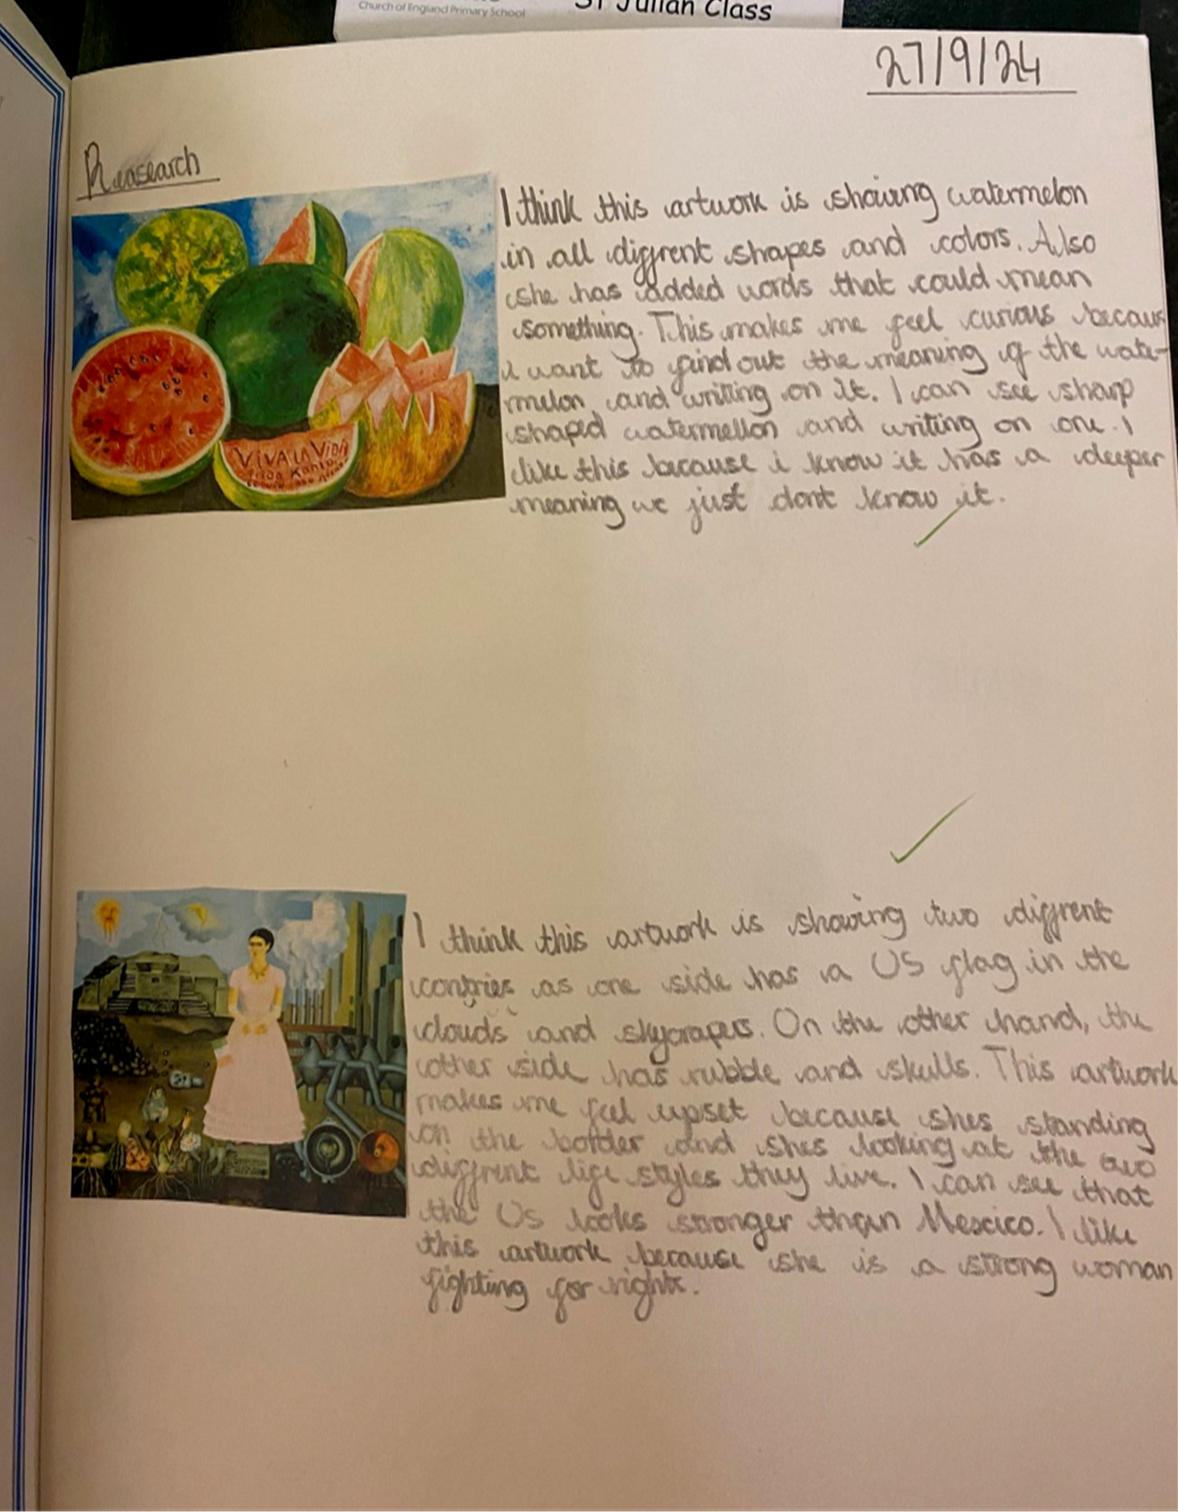 Church of England Primary School
St Julian Class
27/9/24
Reasearch
I think this artwork is showing watermelon
in all diffrent shapes and colors. Also
she has added words that could mean
something. This makes me feel curious becaus
i want to find out the meaning of the wate-
rmelon and writing on it. I can see sharp
shaped watermellon and writing on one. I
like this because i know it has a deeper
meaning we just dont know it.
VIVA LA VIDA
I think this artwork is showing two diffrent
contries as one side has a US flag in the
clouds and skycrapers. On the other hand, the
other side has rubble and skulls. This artwork
makes me feel upset because shes standing
on the border and shes looking at the two
diffrent life styles they live. I can see that
the Us looks stronger than Mescico. I like
this artwork because she is a strong woman
fighting for rights.